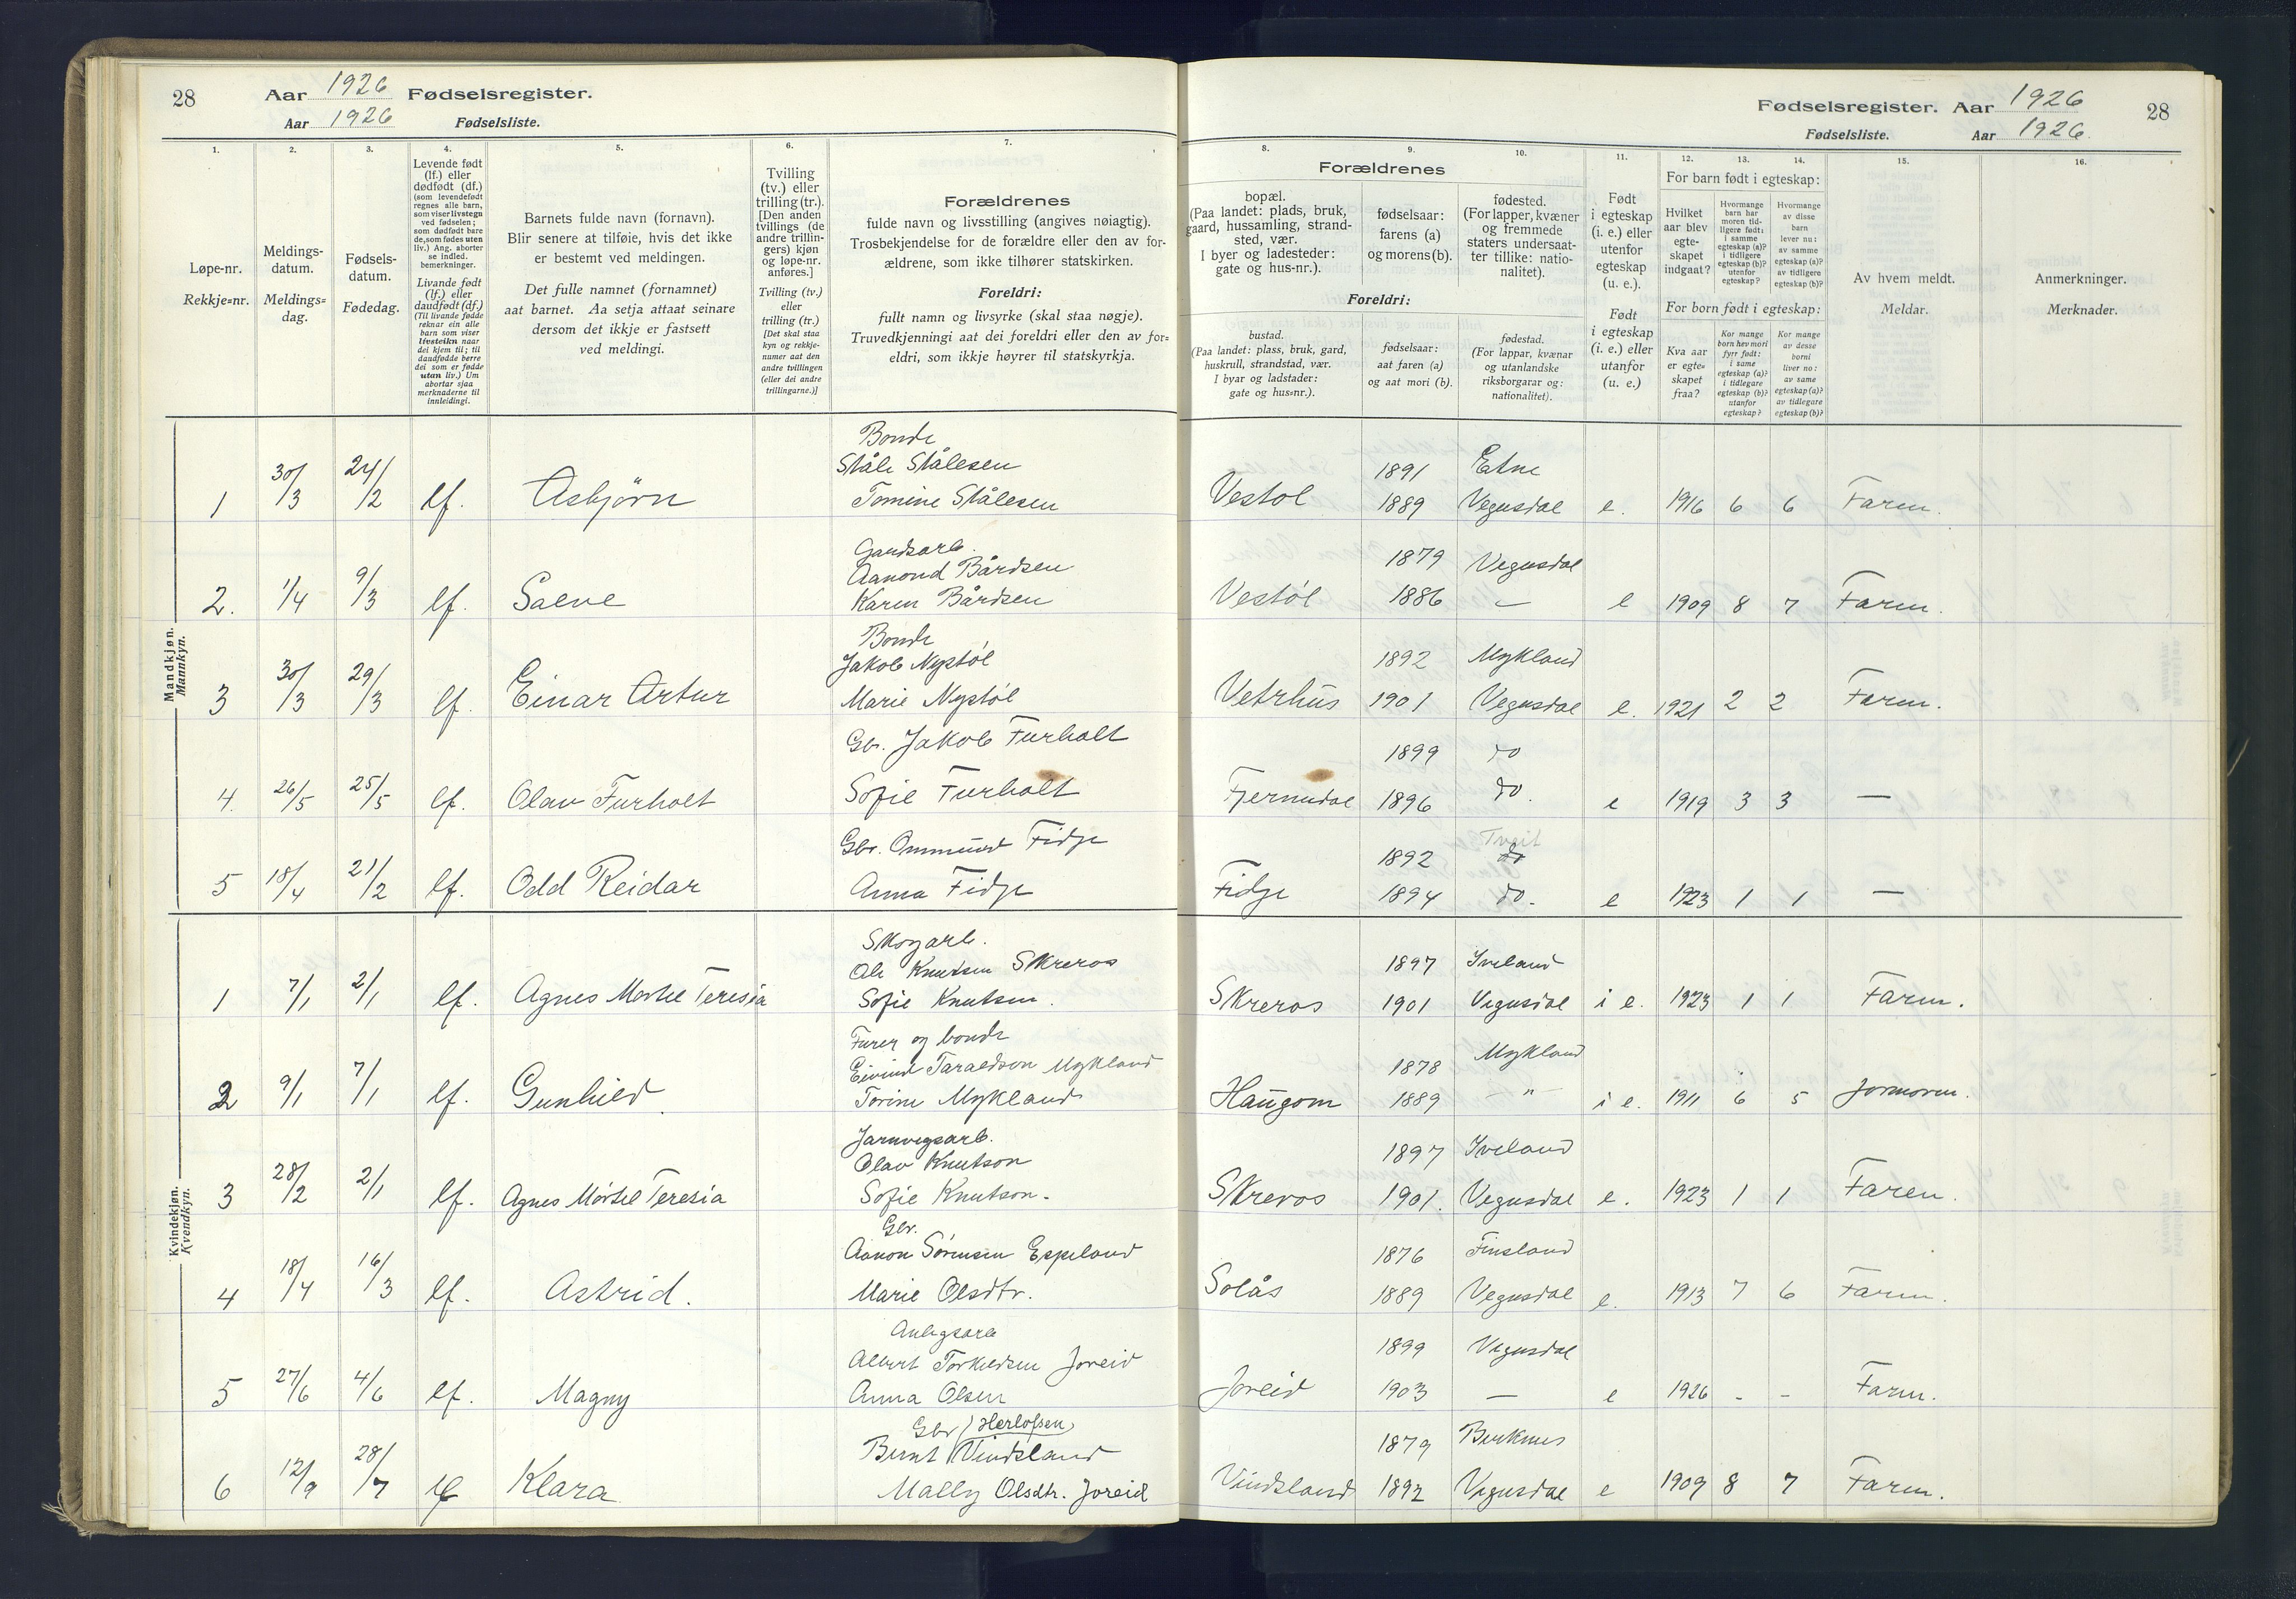 28 Aar 1926 Fødselsregister.
Aar 1926 Fødselsliste.
1.
Løpe-nr.
Rekkje=nr.
2.
Meldings-
datum.
Meldings=
dag.
3.
Fødsels-
datum.
Fødedag.
4.
Levende født
(lf.) eller
dødfødt (df.)
(som levendefødt
regnes alle barn,
som viser livstegn
ved fødselen;
som dødfødt bare
de, som fødes uten
liv.) Ang. aborter
se indled.
bemerkninger.
Livande født
(lf.) eller
daudfødt (df.)
(Til livande fødde
reknar ein alle
barn som viser
livsteikn naar
dei kjem til; til
daudfødde berre
dei som er fødde
utan liv.) Um
abortar sjaa
merknaderne til
innleidingi.
5.
Barnets fulde navn (fornavn).
Blir senere at tilføie, hvis det ikke
er bestemt ved meldingen.
Det fulle namnet (fornamnet)
aat barnet. Aa setja attaat seinare
dersom det ikkje er fastsett
ved meldingi.
6.
Tvilling
(tv.) eller
trilling (tr.).
[Den anden
tvillings (de
andre trillin-
gers) kjøn
og løpe-nr.
anføres.]
Tvilling (tv.)
eller
trilling (tr.)
[Det skal staa
kyn og rekkje-
numer aat den
andre tvillingen
(eller dei andre
trillingarne.)]
7.
Forældrenes
fulde navn og livsstilling (angives nøiagtig).
Trosbekjendelse for de forældre eller den av for-
ældrene, som ikke tilhører statskirken.
Foreldri:
fullt namn og livsyrke (skal staa nøgje).
Truvedkjenningi aat dei foreldri eller den av for=
eldri, som ikkje høyrer til statskyrkja.
Fødselsregister. Aar 1926 28
Fødselsliste. Aar 1926
Forældrenes
8.
bopæl.
(Paa landet: plads, bruk,
gaard, hussamling, strand-
sted, vær.
I byer og ladesteder:
gate og hus-nr.).
Foreldri:
bustad.
(Paa landet: plass, bruk, gard,
huskrull, strandstad, vær.
I byar og ladstader:
gate og hus=nr.).
9.
fødselsaar:
farens (a)
og morens (b).
fødselsaar:
aat faren (a)
og aat mori (b).
10.
fødested.
(For lapper, kvæner
og fremmede
staters undersaat-
ter tillike: natio-
nalitet).
fødestad.
(For lappar, kvænar
og utanlandske
riksborgarar og:
nationalitet).
11.
Født
i egteskap
(i. e.) eller
utenfor
egteskap
(u. e.).
Født
i egteskap
(i. e.) eller
utanfor
egteskap
(u. e.)
12. 13. 14.
For barn født i egteskap:
Hvilket
aar blev
egte-
skapet
indgaat?
Hvormange
barn har
moren tid-
ligere født:
i samme
egteskap (a)?
i tidligere
egteskap (b)?
utenfor
egteskap?
Hvormange
av disse
barn
lever nu:
av samme
egteskap (a)?
av tidligere
egteskap (b)?
For born født i egteskap:
Kva aar
er egte=
skapet
fraa?
Kor mange
born hev mori
fyrr født:
i same
egteskap (a)?
i tidlegare
egteskap (b)?
utanfor
egteskap?
Kor mange
av desse
borni
liver no:
av same
egteskap (a)?
av tidlegare
egteskap (b)?
15.
Av hvem meldt.
Meldar.
16.
Anmerkninger.
Merknader.
Mandkjøn.
Mannkyn.
Bonde
Ståle Stålesen 1891 Etne
1 30/3 24/2 lf. Asbjørn Tomine Stålesen Vestøl 1889 Vegusdal e. 1916 6 6 Faren.
Gardsarb.
Aanond Bårdsen 1879 Vegusdal
2. 1/4 9/3 lf. Salve Karen Bårdsen Vestøl 1886 — e 1909 8 7 Faren.
Bonde
Jakob Nystøl 1892 Mykland
3 30/3 29/3 lf. Einar Artur Marie Nystøl Vetrhus 1901 Vegusdal e. 1921 2 2 Faren.
Gbr. Jakob Furholt 1899 do
4. 26/5 25/5 lf. Olav Furholt Sofie Furholt Fjermedal 1896 do. e 1919 3 3 —
Gbr. Ommund Fidje 1892 Tveit do
5 18/4 21/2 lf. Odd Reidar Anna Fidje Fidje 1894 do. e 1923 1 1 —
Kvindekjøn.
Kvendkyn.
Skogarb.
Ole Knutsen Skreros 1897 Iveland
1 7/1 2/1 lf. Agnes Mertel Teresia Sofie Knutsen. Skreros 1901 Vegusdal i e. 1923 1 1 Faren.
Furer og bonde
Eivind Taraldson Mykland 1878 Mykland
2 9/1 7/1 lf. Gunhild. Torine Mykland Haugom 1889 —"— i e. 1911 6 5 Jormoren.
Jarnvegsarb.
Olav Knutson 1897 Iveland
3 28/2 2/1 lf. Agnes Mertel Teresia Sofie Knutson. Skreros 1901. Vegusdal e. 1923 1 1 Faren.
Gbr.
Aanon Sørensen Espeland 1876 Finsland
4 18/4 16/3 lf. Astrid. Marie Olsdtr. Solås 1889 Vegusdal e. 1913 7 6 Faren.
Anlegsarb
Albert Torkildsen Joreid 1899 Vegusdal
5 27/6 4/6 lf. Magny Anna Olsen Joreid 1903 — e 1926 - - Faren.
Gbr (Herlofsen)
Bernt Vindsland 1879 Birkenes
6 12/9 28/7 lf Klara Mally Olsdtr. Joreid Vindsland 1892 Vegusdal e 1909 8 7 Faren.